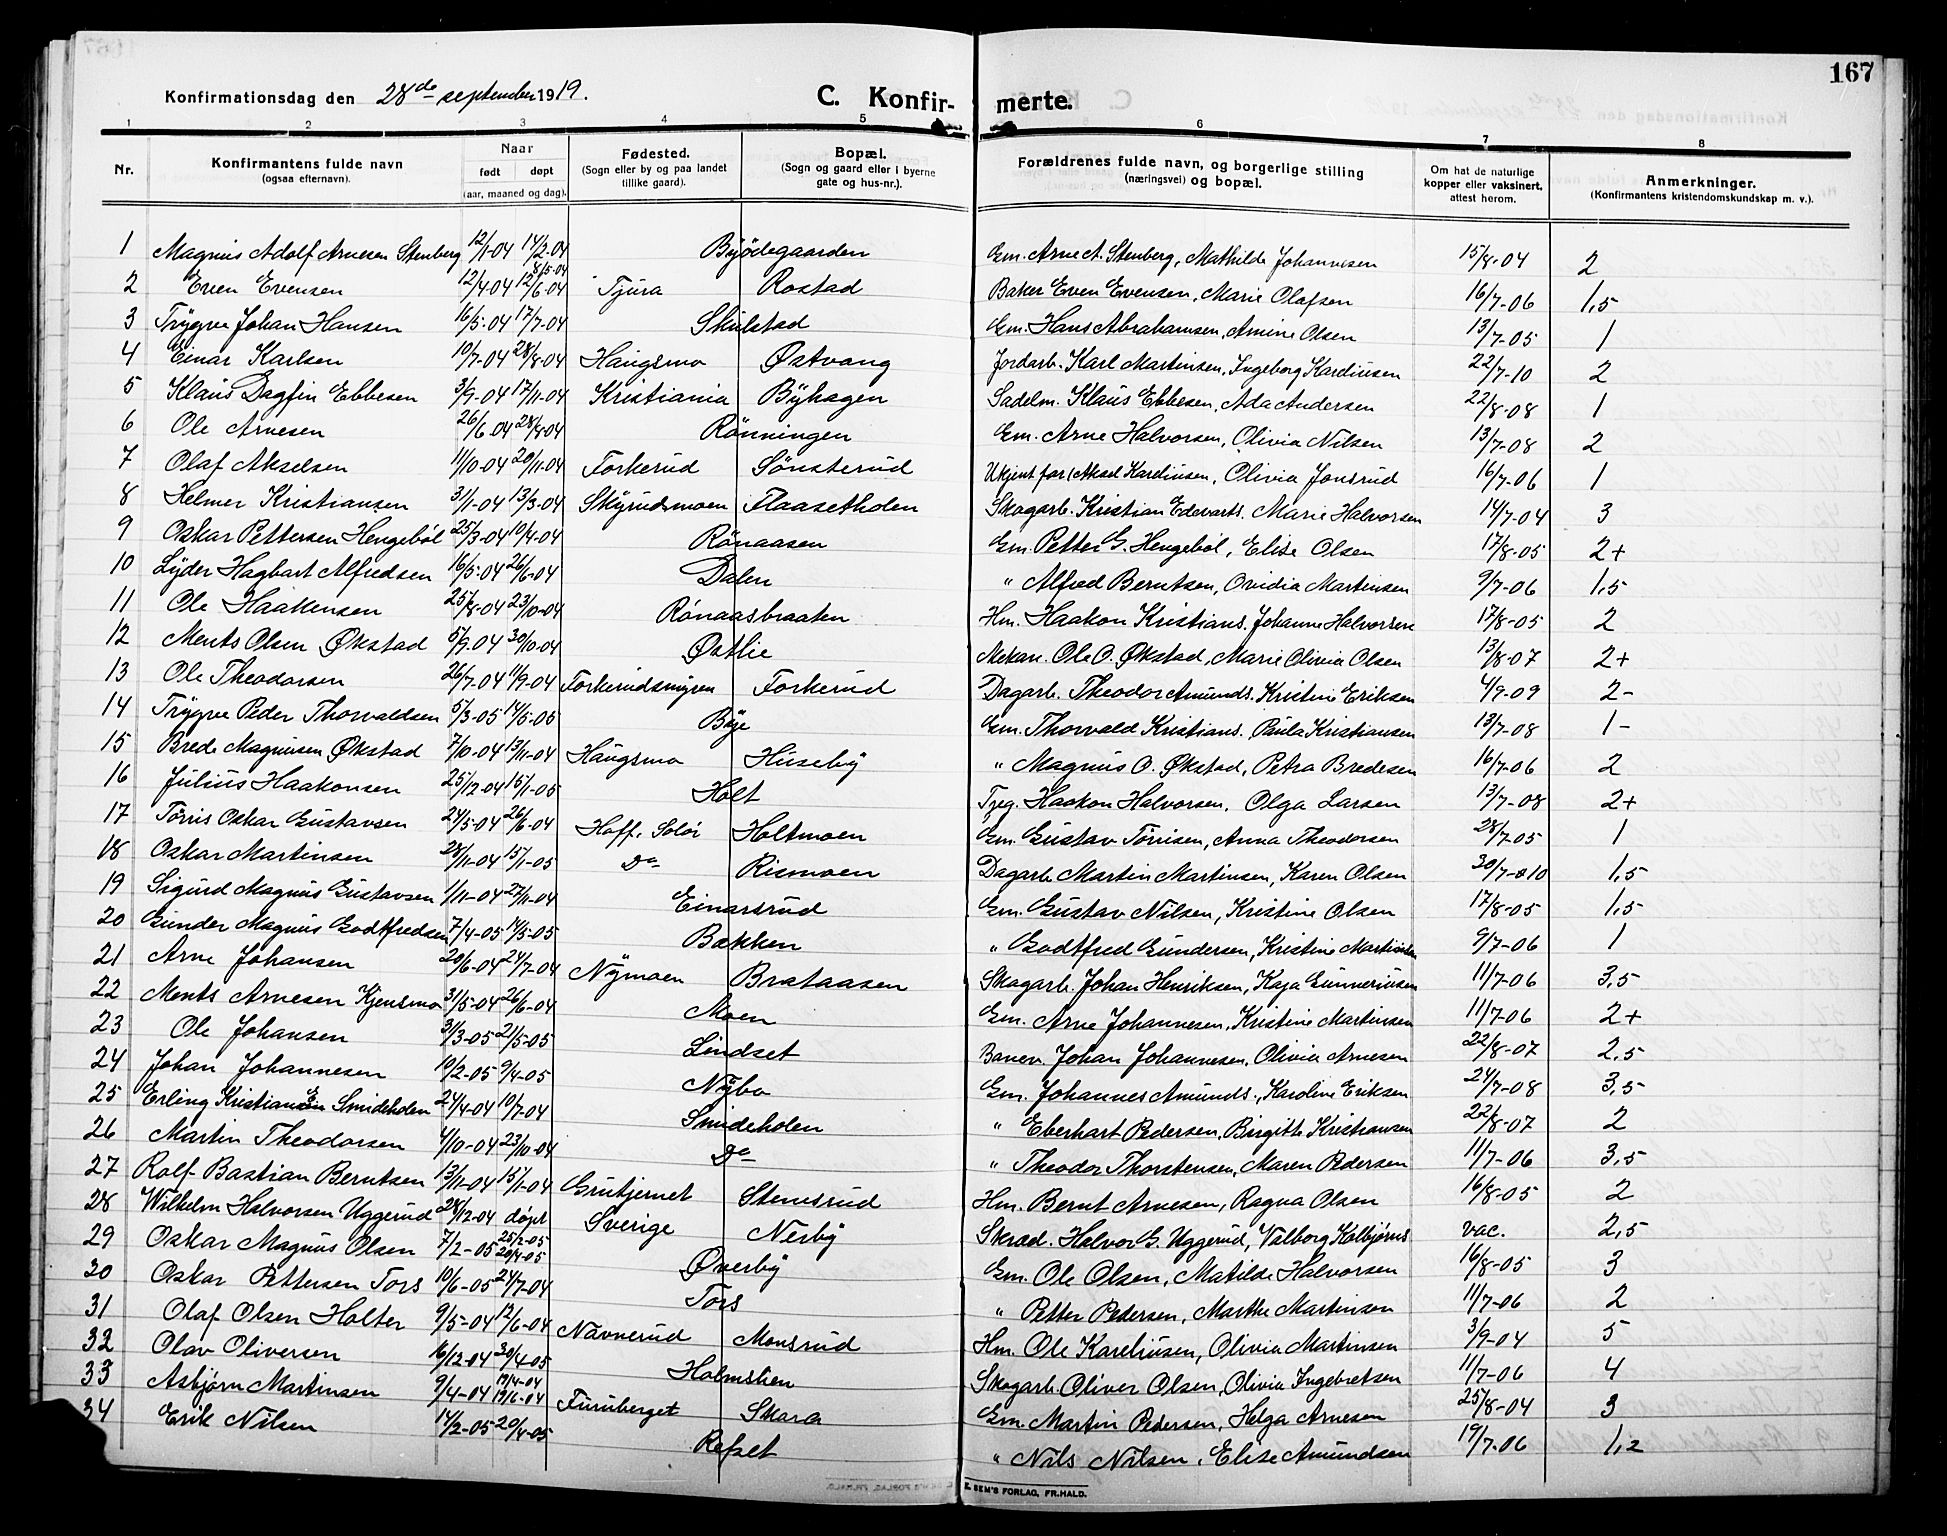 167
Konfirmationsdag den 28de september 1919.
C. Konfirmerte.
1 2 3 4 5 6 7 8
Nr. Konfirmantens fulde navn (ogsaa efternavn). Naar født døpt (aar, maaned og dag). Fødested. (Sogn eller by og paa landet tillike gaard). Bopæl. (Sogn og gaard eller i byerne gate og hus-nr.). Forældrenes fulde navn, og borgerlige stilling (næringsvei) og bopæl. Om hat de naturlige kopper eller vaksinert, attest herom. Anmerkninger. (Konfirmantens kristendomskundskap m. v.).
1 Magnus Adolf Arnesen Stenberg 12/1-04 14/2-04 Byödegaarden Gm. Arne A. Stenberg, Mathilde Johannesen 15/8-04 2
2 Even Evensen 12/4-04 8/5-04 12/6-04 Tjura Rostad Baker Even Evensen, Marie Olafsen 16/7-06 1,5
3 Trygve Johan Hansen 16/5-04 17/7-04 Skulstad Gm. Hans Abrahamsen, Amine Olsen 13/7-05 1
4 Einar Karlsen 19/7-04 28/8-04 Haugsmo Østvang Jordarb. Karl Martinsen, Ingeborg Kardiusen 22/7-10 2
5 Klaus Dagfin Ebbesen 3/9-04 17/11-04 Kristiania Byhagen Sadelm. Klaus Ebbesen, Ada Andersen 22/8-08 1
6 Ole Arnesen 26/6-04 28/8-04 Rönningen Gm. Arne Halvorsen, Olivia Nilsen 13/7-08 2
7 Olaf Akselsen 11/10-04 20/11-04 Forkerud Sönsterud Ukjent far (Aksel Kardiusen, Olivia Jonsrud 16/7-06 1
8 Helmer Kristiansen 31/1-04 13/3-04 Skyrudsmoen Flaasetholen Skogarb. Kristian Edevarts. Marie Halvorsen 14/7-04 3
9 Oskar Pettersen Hengeböl 25/3-04 10/4-04 Rönaasen Gm. Petter G. Hengeböl, Elise Olsen 17/8-05 2+
10 Lyder Hagbart Alfredsen 16/5-04 26/6-04 Dalen " Alfred Berntsen, Ovidia Martinsen 9/7-06 1,5
11 Ole Haakensen 25/8-04 23/10-04 Rönaasbraaten Hm. Haakon Kristians. Johanne Halvorsen 17/8-05 2
12 Ments Olsen Økstad 5/9-04 30/10-04 Østlie Mekan. Ole O. Økstad, Marie Olivia Olsen 13/8-07 2+
13 Ole Theodorsen 26/7-04 11/9-04 Forkerudsmyren Forkerud Dagarb. Theodor Amunds. Kristine Eriksen 4/9-09 2-
14 Trygve Peder Thorvaldsen 5/3-05 14/5-05 Bye Gm. Thorvald Kristians. Paula Kristiansen 13/7-08 1-
15 Brede Magnusen Økstad 7/10-04 13/11-04 Haugsmo Huseby " Magnus O. Økstad, Petra Bredesen 16/7-06 2
16 Julius Haakonsen 25/12-04 15/1-05 Holt Tjeg. Haakon Halvorsen, Olga Larsen 13/7-08 2+
17 Törris Oskar Gustavsen 24/5-04 26/6-04 Hoff, Solör Holtmoen Gm. Gustav Törrisen, Anna Theodorsen 28/7-05 1
18 Oskar Martinsen 28/11-04 15/1-05 Do Rismoen Dagarb. Martin Martinsen, Karen Olsen 30/7-10 1,5
19 Sigurd Magnus Gustavsen 1/11-04 27/11-04 Einarsrud Gm. Gustav Nilsen, Kristine Olsen 17/8-05 1,5
20 Gunder Magnus Godtfredsen 7/4-05 14/5-05 Bakken " Godtfred Gundersen, Kristine Martinsen 9/7-06 1
21 Arne Johansen 20/6-04 24/7-04 Nymoen Brataasen Skogarb. Johan Henriksen, Kaja Gunneriusen 11/7-06 3,5
22 Ments Arnesen Kjensmo 31/5-04 26/6-04 Moen Gm. Arne Johannesen, Kristine Martinsen 11/7-06 2+
23 Ole Johansen 31/3-05 21/5-05 Lindset Banev. Johan Johannesen, Olivia Arnesen 22/8-07 2,5
24 Johan Johannesen 10/2-05 9/4-05 Nybo Gm. Johannes Amunds., Karoline Eriksen 24/7-08 3,5
25 Erling Kristian E Smideholen 24/4-04 10/7-04 Smideholen " Eberhart Pedersen, Birgitte Kristiansen 22/8-07 2
26 Martin Theodorsen 4/10-04 23/10-04 Do " Theodor Thorstensen, Maren Pedersen 11/7-06 3,5
27 Rolf Bastian Berntsen 13/11-04 15/1-04 Grutjernet Stemsrud Hm. Bernt Arnesen, Ragna Olsen 16/8-05 2
28 Wilhelm Halvorsen Uggerud 28/12-04 døpt Sverige Nerby Skræd. Halvor G. Uggerud, Valborg Kolbjørns vac. 2,5
29 Oskar Magnus Olsen 7/2-05 25/2-05 20/4-05 Øverby Gm. Ole Olsen, Matilde Halvorsen 16/8-05 3
30 Oskar Pettersen Tors 10/6-05 24/7-04 Tors " Petter Pedersen, Marthe Martinsen 11/7-06 2
31 Olaf Olsen Holter 9/5-04 12/6-04 Navnerud Monsrud Hm. Ole Kareliusen, Olivia Martinsen 3/9-04 5
32 Olav Oliversen 16/12-04 30/4-05 Holmstien Skogarb. Oliver Olsen, Olivia Ingebretsen 11/7-06 4
33 Asbjørn Martinsen 9/4-04 19/4-04 19/6-04 Furuberget Skara Gm. Martin Pedersen, Helga Arnesen 25/8-04 3
34 Erik Nilsen 14/2-05 20/4-05 Refset " Nils Nilsen, Elise Amundsen 19/7-06 1,2
E. SEM'S FORLAG, FR.HALD.